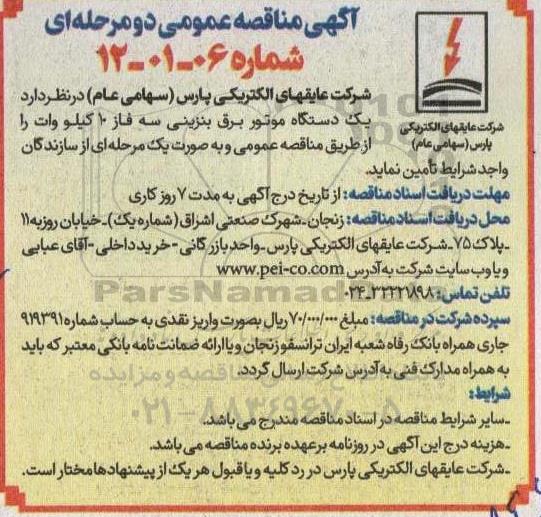 آگهی مناقصه عمومی دو مرحله‌ای
شماره ۰۶-۰۱-۱۲
شرکت عایقهای الکتریکی
پارس (سهامی عام)
شرکت عایقهای الکتریکی پارس (سهامی عام) در نظر دارد
یک دستگاه موتور برق بنزینی سه فاز ۱۰ کیلو وات را
از طریق مناقصه عمومی و به صورت یک مرحله ای از سازندگان
واجد شرایط تأمین نماید.
مهلت دریافت اسناد مناقصه: از تاریخ درج آگهی به مدت ۷ روز کاری
محل دریافت اسناد مناقصه: زنجان-شهرک صنعتی اشراق (شماره یک)-خیابان روزبه۱۱
-پلاک ۷۵-شرکت عایقهای الکتریکی پارس-واحد بازرگانی-خرید داخلی-آقای عبایی
و یا وب سایت شرکت به آدرس www.pei-co.com
تلفن تماس: ۳۲۲۲۱۸۹۸-۰۲۴
سپرده شرکت در مناقصه: مبلغ ۷۰/۰۰۰/۰۰۰ ریال بصورت واریز نقدی به حساب شماره ۹۱۹۳۹۱
جاری همراه بانک رفاه شعبه ایران ترانسفو زنجان و یا ارائه ضمانت نامه بانکی معتبر که باید
به همراه مدارک فنی به آدرس شرکت ارسال گردد.
شرایط:
-سایر شرایط مناقصه در اسناد مناقصه مندرج می باشد.
-هزینه درج این آگهی در روزنامه بر عهده برنده مناقصه می باشد.
-شرکت عایقهای الکتریکی پارس در رد کلیه و یا قبول هر یک از پیشنهادها مختار است.
ParsNamadData
۰۲۱-۸۸۳۴۹۶۷۰-۵